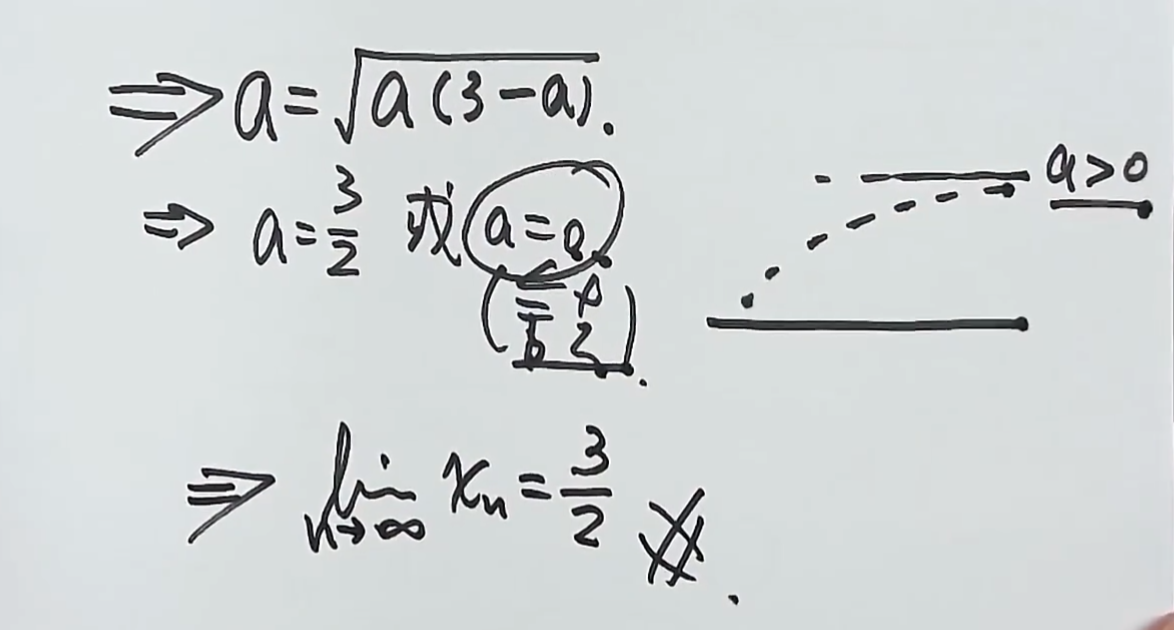 ⇒ a = √(a(3-a)).
⇒ a = 3/2 或 a = 0.
(舍).
⇒ lim n→∞ xₙ = 3/2 #.
a > 0